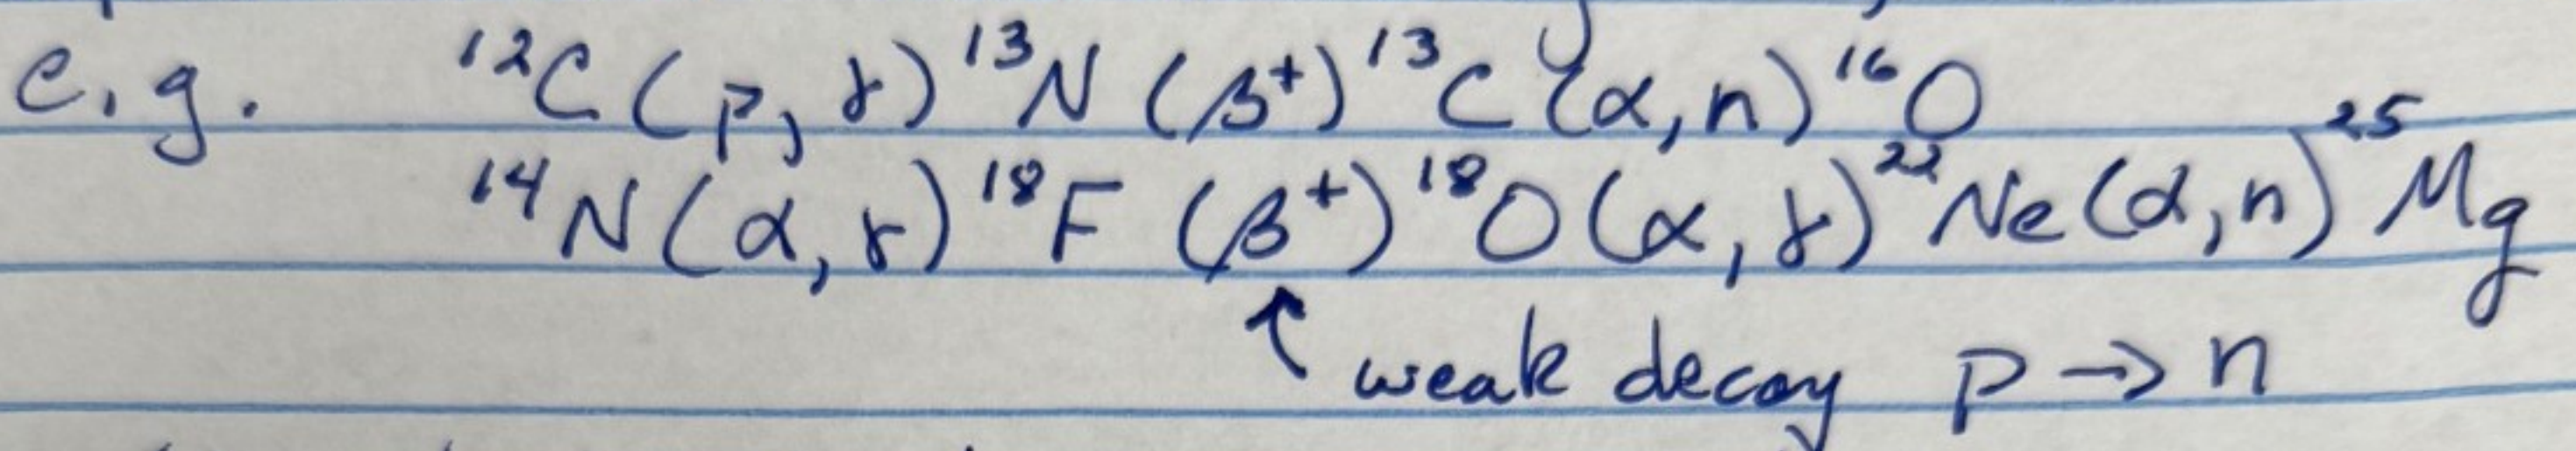 e.g. ¹²C(p,γ)¹³N(β⁺)¹³C(α,n)¹⁶O
¹⁴N(α,γ)¹⁸F(β⁺)¹⁸O(α,γ)²²Ne(α,n)²⁵Mg
↑ weak decay p → n